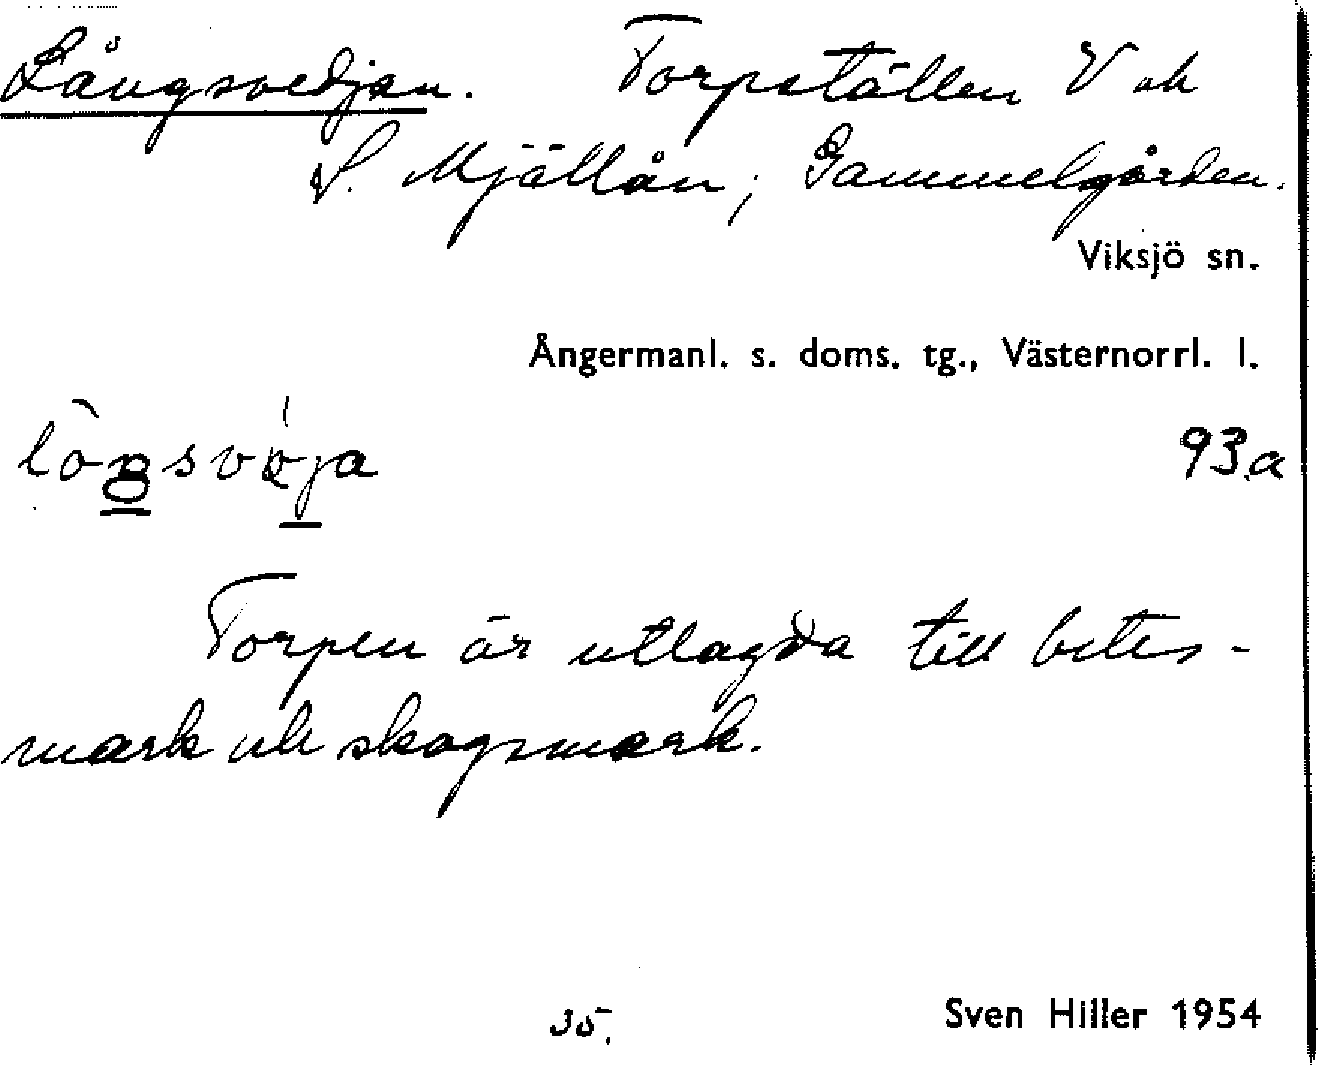 Långsvedjan. Torpställen V och
S. Mjällån; Gammelgården.
Viksjö sn.
Ångermanl. s. doms. tg., Västernorrl. l.
93.a
Torpen är utlagda till betes-
mark och skogsmark.
35.
Sven Hiller 1954